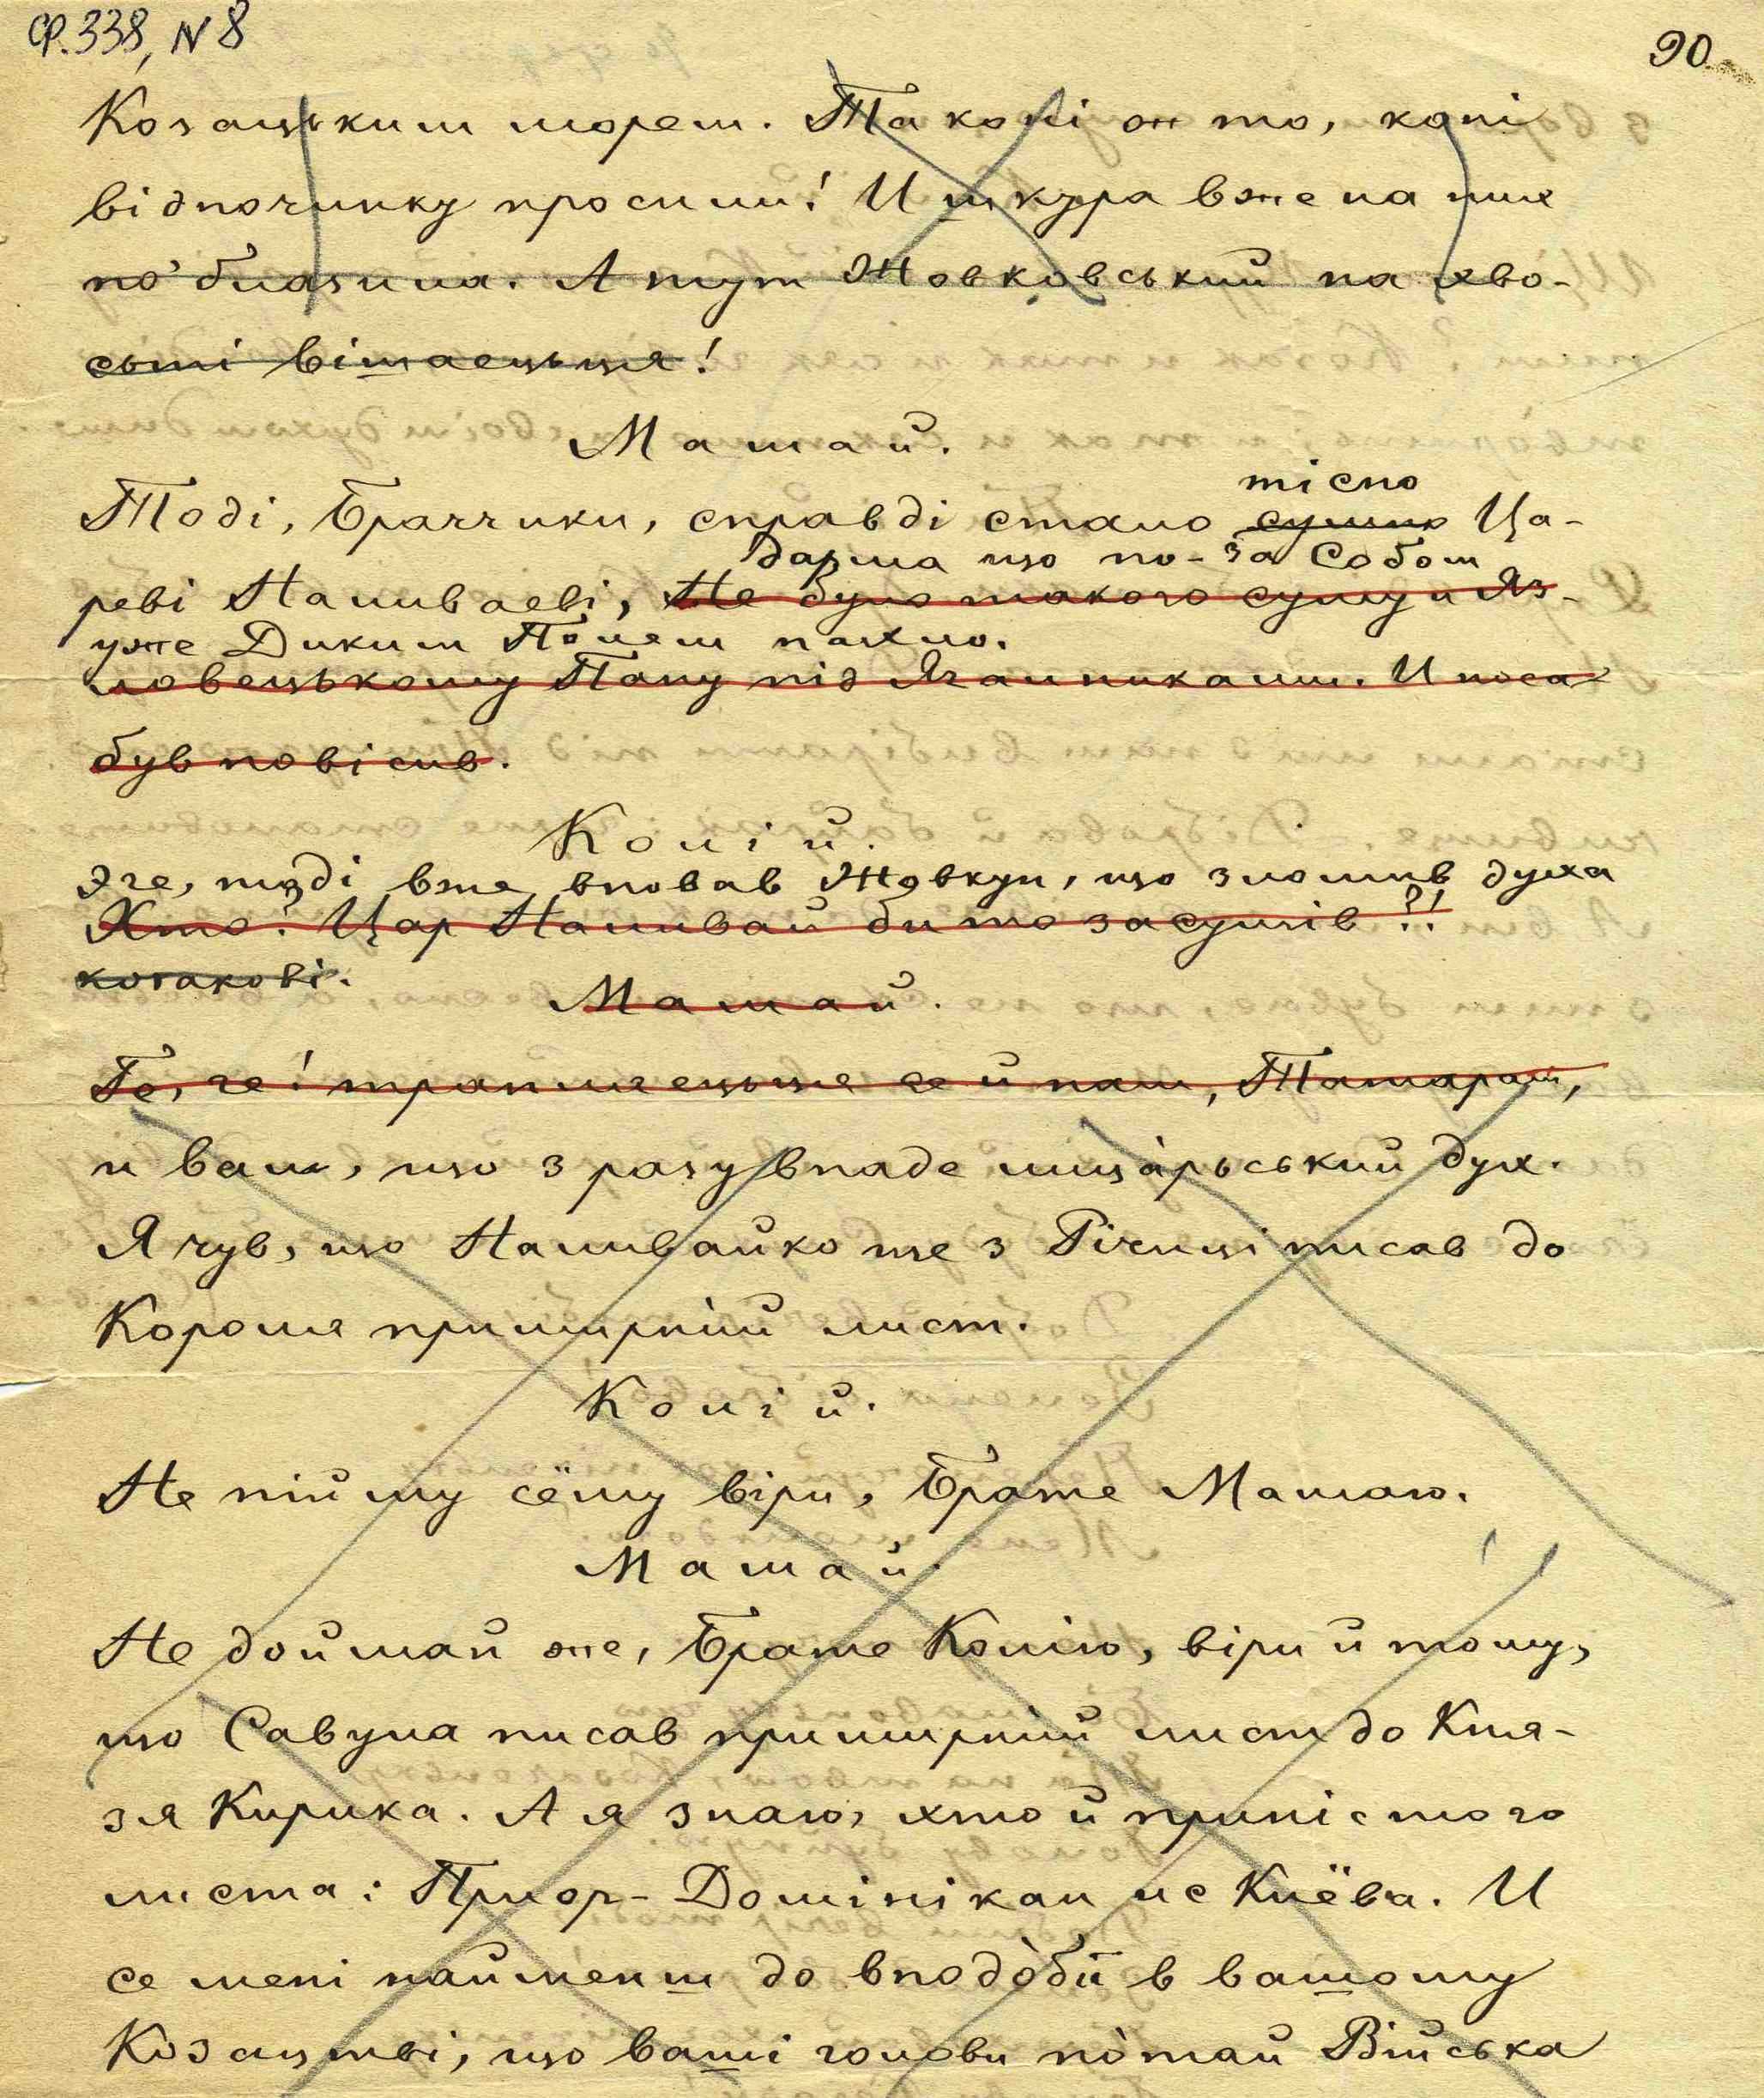 Ф. 338, N 8
90.
Козацьким морем. Та коні ж то, коні
відпочинку просили! И шкура вже на них
по̀блазила. А тут Жовковський на хво-
сьті вішаецьця!
Мамай.
тісно
Тоді, Браччики, справді стало сумно Ца-
дарма що по-за Собою
реві Наливаеві, Не було такого суму и Яз-
уже Диким Полем пахло.
ловецькому Пану під Яганчиками. И носа
був повісив.
Колій.
Эге, тоді вже вповав Жовкун, що зломив духа
Хто? Цар Наливай би то засумів?!
козакові.
Мамай.
Ге, ге! трапляецьця се й нам, Татарам,
и вам, що з разу впаде лица̀рьський дух.
Я чув, що Наливайко ще з Річиці писав до
Короля примирний лист.
Колій.
Не пійму сёму віри, Брате Мамаю.
Мамай.
Не доймай же, Брате Колію, віри й тому,
що Савула писав примирний лист до Кня-
зя Кирика. А я знаю, хто й приніс того
листа: Приор-Домінікан ис Киёва. И
се мені найменш до вподо̀би в вашому
Козацтві, що ваші голови по̀тай Війська